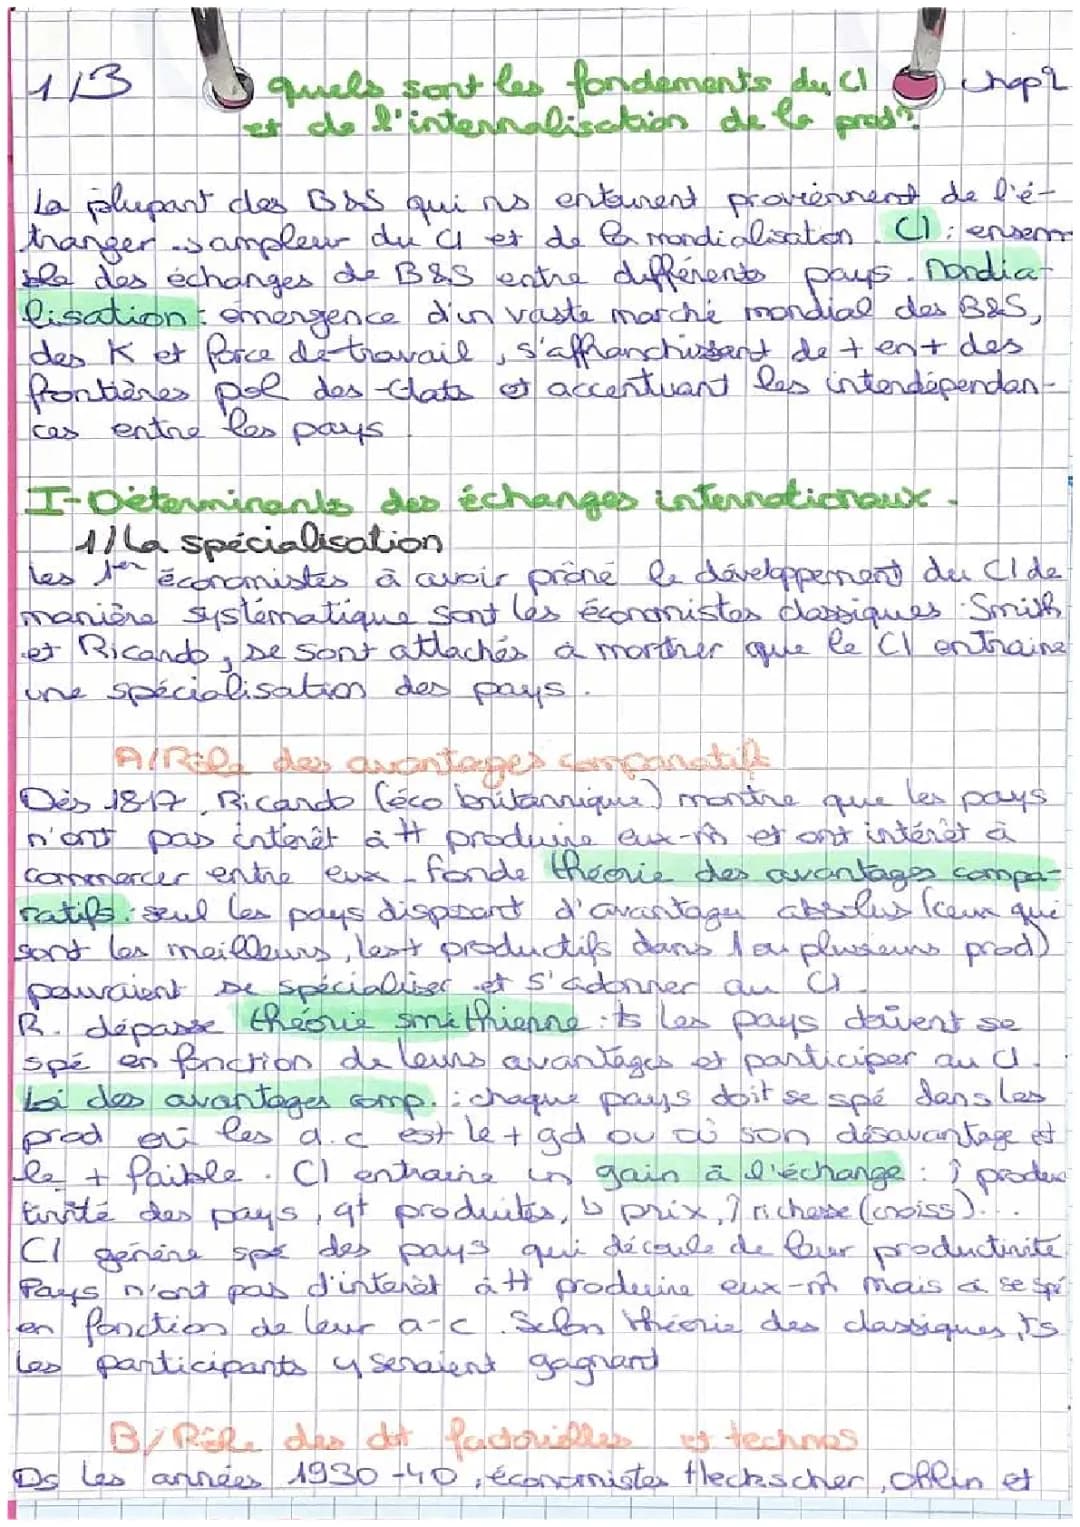 1/3
quels sont les fondements du CI
Chap 2
et de l'internalisation de la prod?
La plupart des B&S qui ns entourent proviennent de l'é-
tranger. sampleur du CI et de la mondialisation. CI : ensem
ble des échanges de B&S entre différents pays. Mondia-
lisation : émergence d'un vaste marché mondial des B&S,
des K et force de travail, s'affranchissant de + en + des
frontières pol des états et accentuant les interdépendan-
ces entre les pays
I-Déterminants des échanges internationaux.
1/ La spécialisation
Les 1er économistes à avoir prôné le développement du CI de
manière systématique sont les économistes classiques. Smith
et Ricardo, se sont attachés à montrer que le CI entraine
une spécialisation des pays.
A/ Rôle des avantages comparatifs
Dès 1817, Ricardo (éco britannique) montre que les pays
n'ont pas intérêt à tt produire eux-m̂ et ont intérêt à
commercer entre eux - fonde théorie des avantages compa-
ratifs : seul les pays disposant d'avantages absolus (ceux qui
sont les meilleurs, les + productifs dans 1 ou plusieurs prod)
pouvaient se spécialiser et s'adonner au CI.
R. dépasse théorie smithienne : ts les pays doivent se
spé en fonction de leurs avantages et participer au CI.
Loi des avantages comp. : chaque pays doit se spé dans les
prod où les a.c est le + gd ou où son désavantage est
le + faible. CI entraine un gain à l'échange : ↑ produc
tivité des pays, qt produites, ↓ prix, ↑ richesse (croiss)...
CI génère spé des pays qui découle de leur productivité
Pays n'ont pas d'intérêt à tt produire eux-m̂ mais à se spé
en fonction de leur a-c. Selon théorie des classiques, ts
les participants y seraient gagnant
B/ Rôle des dot factorielles et technos
Ds les années 1930-40, économistes Heckscher, Ohlin et